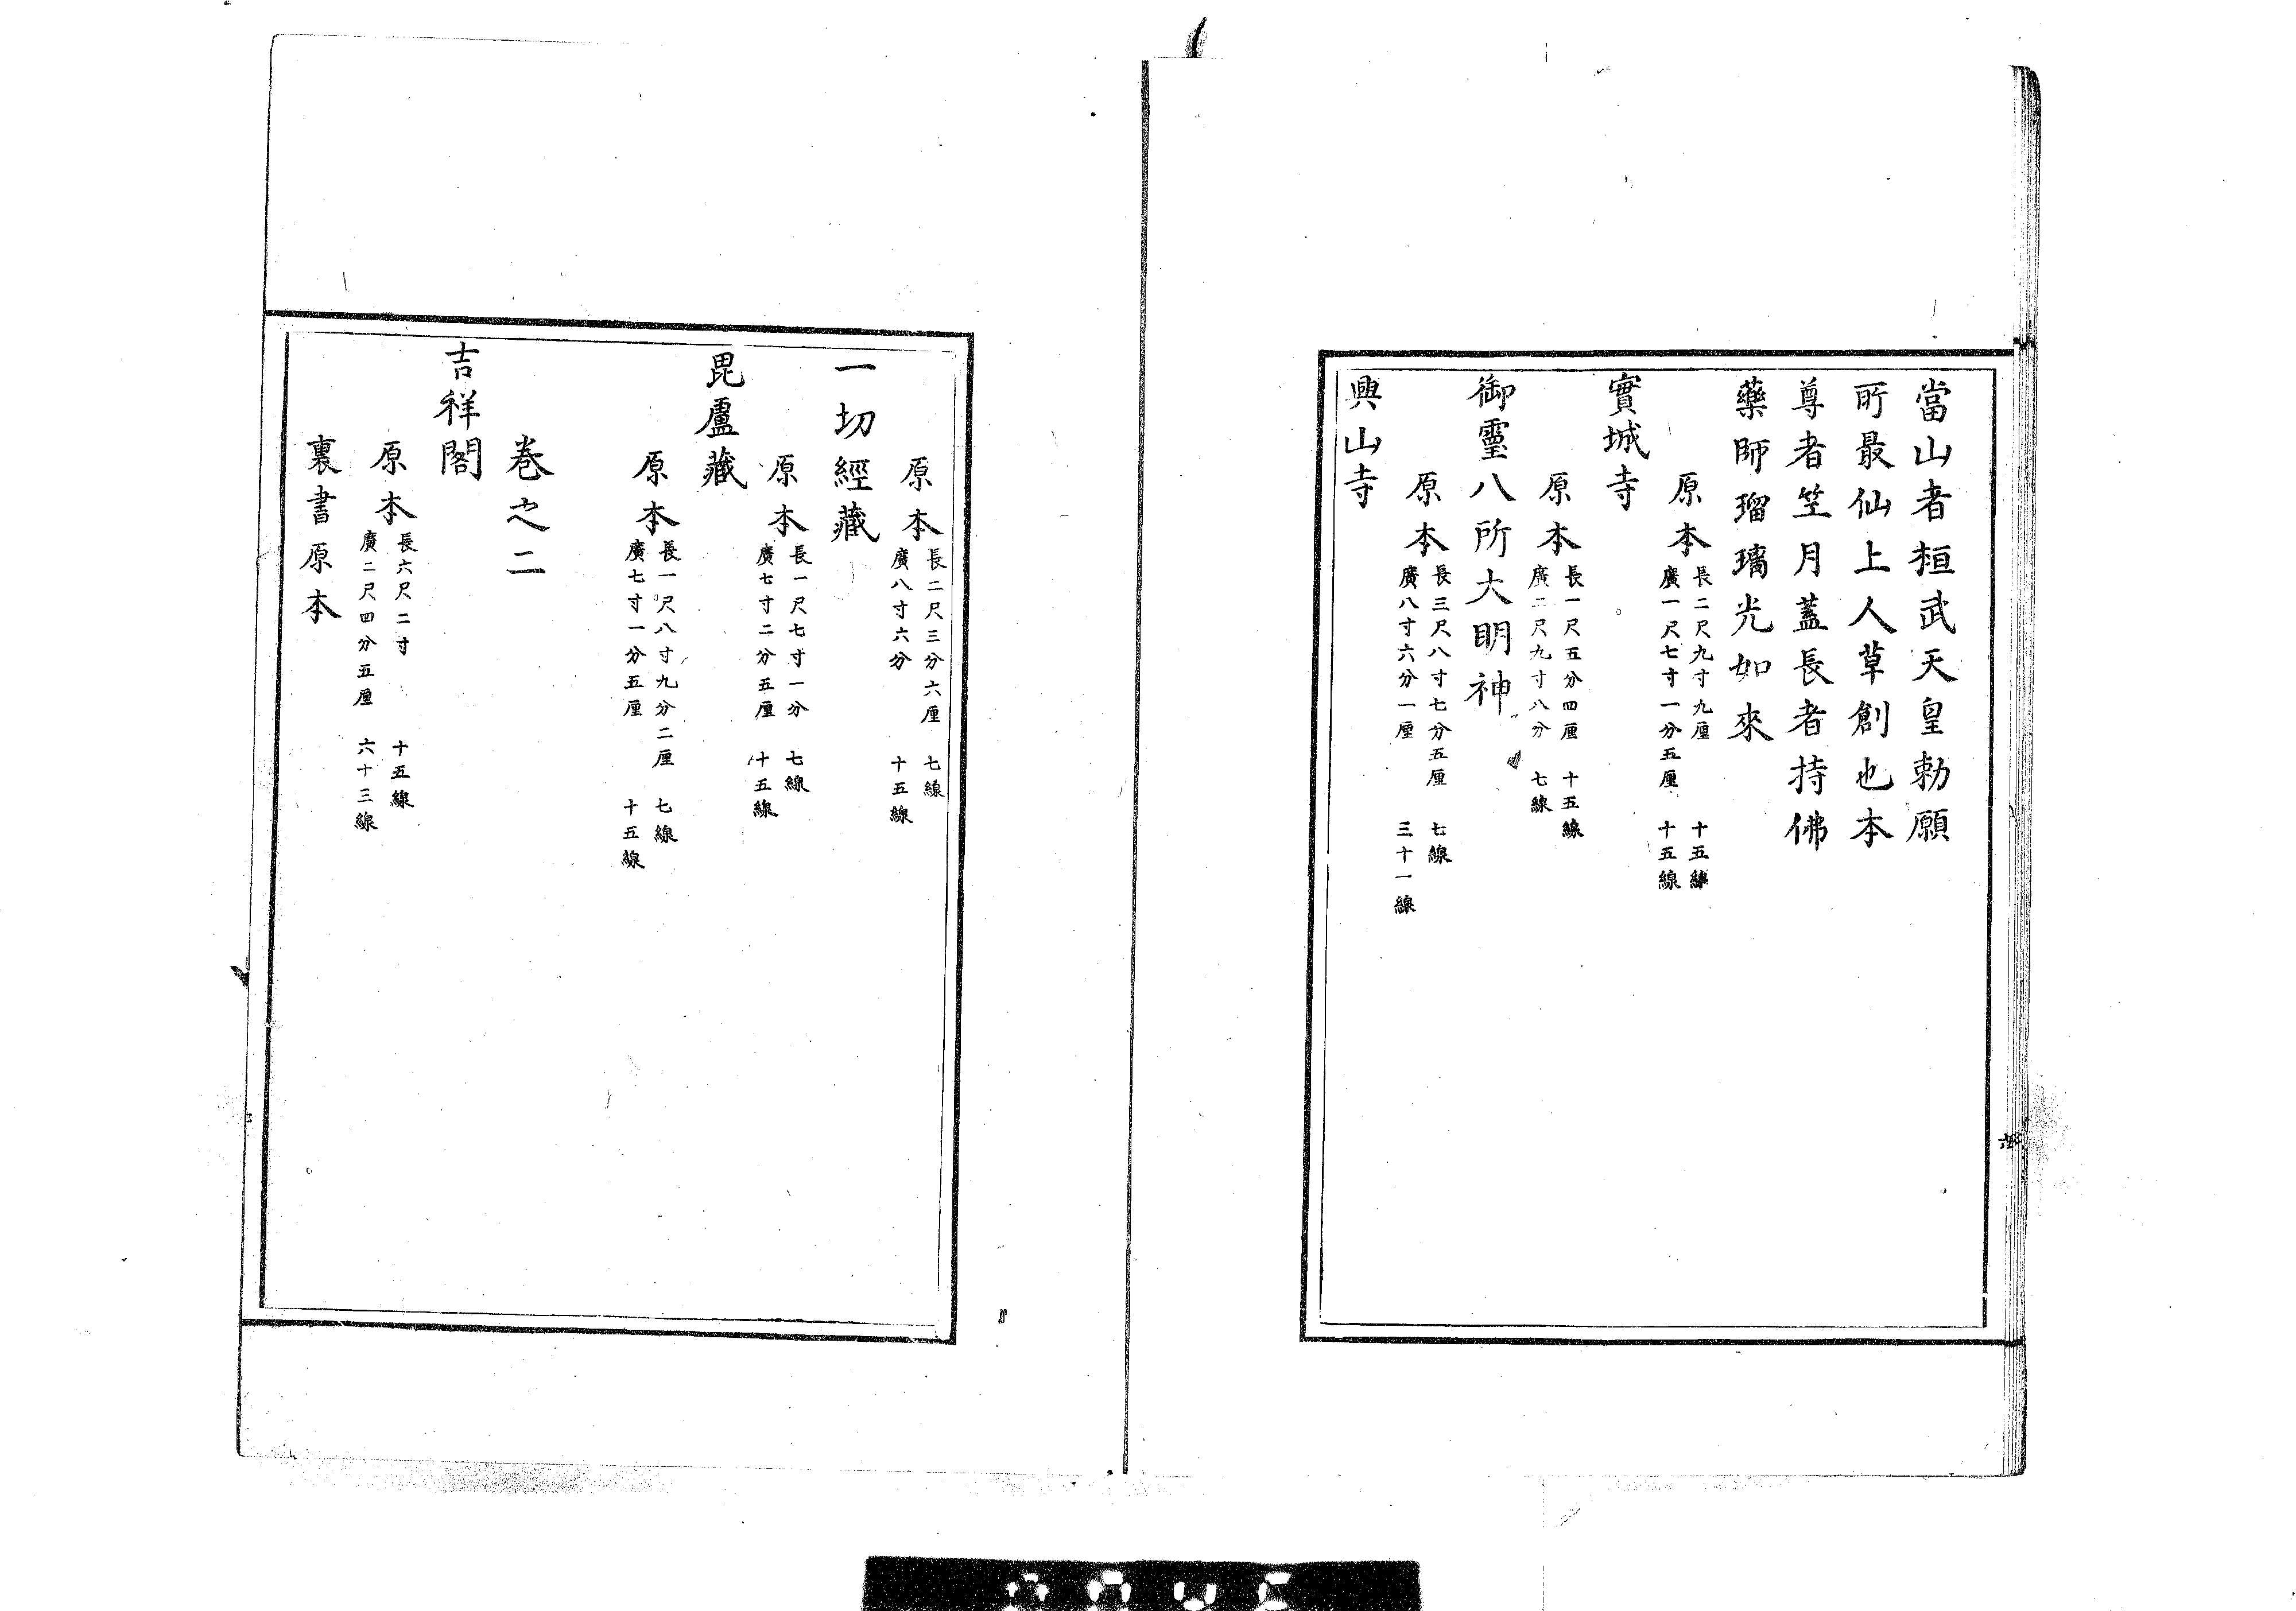 當山者桓武天皇勅願
所最仙上人草創也本
尊者竺月蓋長者持佛
藥師瑠璃光如來
原本長二尺九寸九厘 十五線
廣一尺七寸一分五厘 十五線
實城寺
原本長一尺五分四厘 十五線
廣二尺九寸八分 七線
御靈八所大明神
原本長三尺八寸七分五厘 七線
廣八寸六分一厘 三十一線
興山寺
原本長二尺三分六厘 七線
廣八寸六分 十五線
一切經藏
原本長一尺七寸一分 七線
廣七寸二分五厘 十五線
毘盧藏
原本長一尺八寸九分二厘 七線
廣七寸一分五厘 十五線
卷之二
吉祥閣
原本長六尺二寸 十五線
廣二尺四分五厘 六十三線
裏書原本